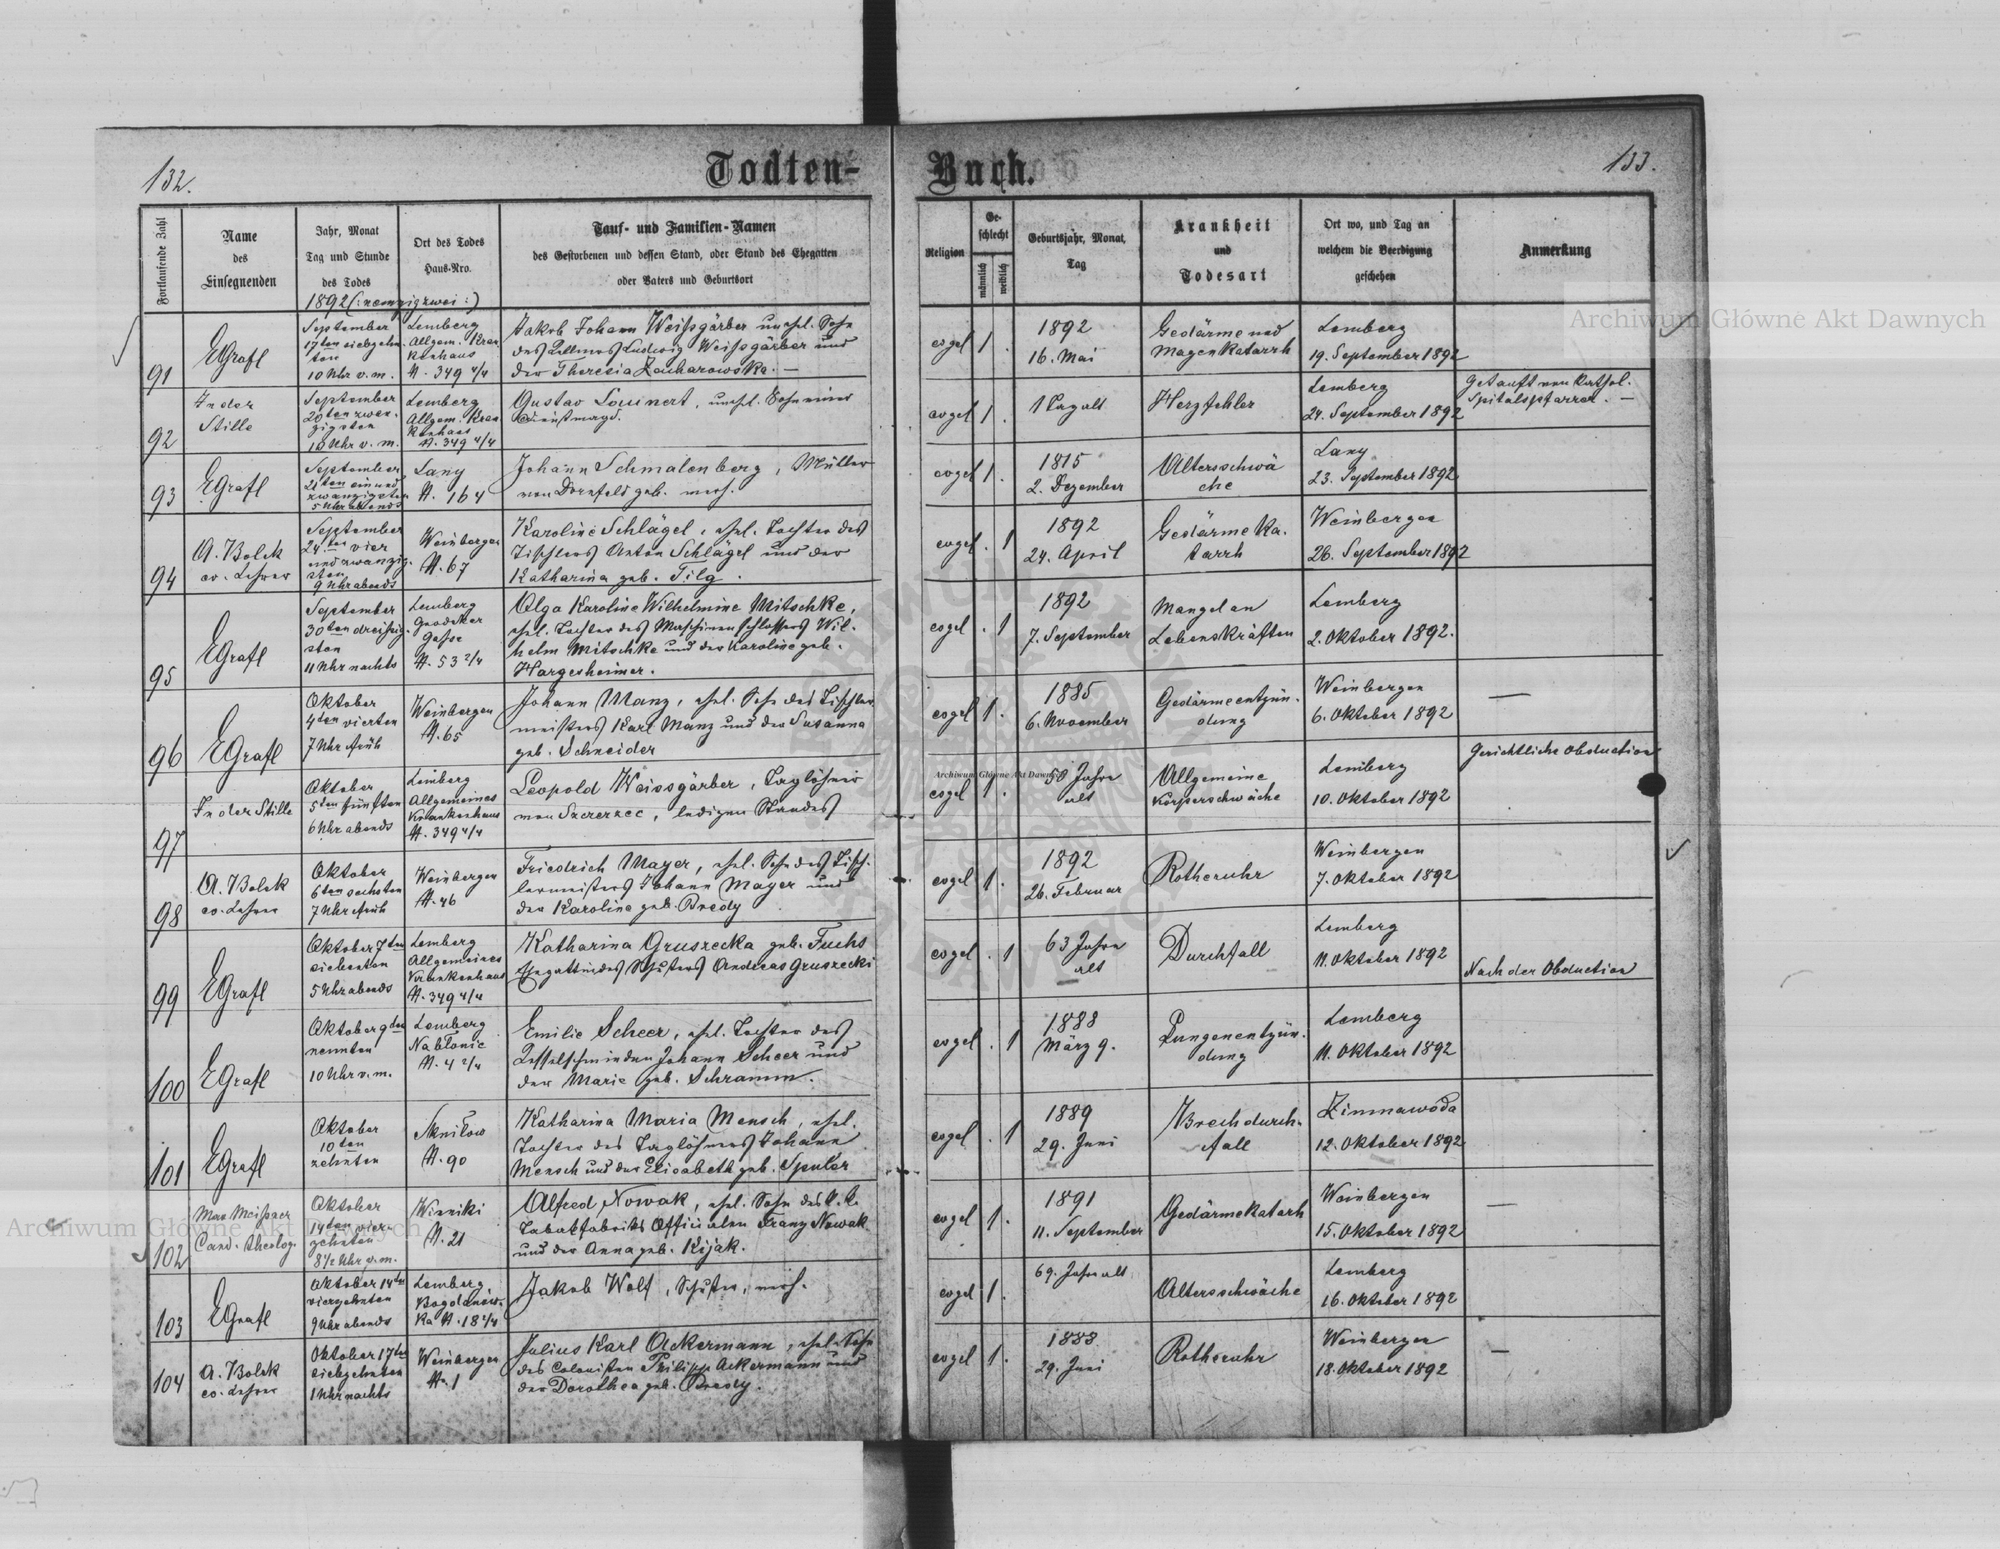 132.
Todten-
Buch.
133.
Fortlaufende Zahl
Name
des
Einsegnenden
Jahr, Monat
Tag und Stunde
des Todes
Ort des Todes
Haus-Nro.
Tauf- und Familien-Namen
des Gestorbenen und dessen Stand, oder Stand des Ehegatten
oder Vaters und Geburtsort
Religion
Ge-
schlecht
männlich
weiblich
Geburtsjahr, Monat,
Tag
Krankheit
und
Todesart
Ort wo, und Tag an
welchem die Beerdigung
geschehen
Anmerkung
1892 (: neunzigzwei :)
91
EGrafl
September
17ten siebzehn-
ten
10 Uhr v. m.
Lemberg
Allgem. Kran
kenhaus
N. 349 4/4
Jakob Johann Weißgärber unehl. Sohn
des Ludwig Weißgärber und
der Theresia Zacharowska. —
evgel 1 .
1892
16. Mai
Gedärme und
Magenkatarrh
Lemberg
19. September 1892
92
In der
Stille
September
20ten zwan-
zigsten
10 Uhr v. m.
Lemberg
Allgem. Kran
kenhaus
N. 349 4/4
Gustav unehl. Sohn einer
Dienstmagd.
evgel 1 .
1 Tag alt
Herzfehler
Lemberg
24. September 1892
Getauft vom kathol.
Spitalspfarrer. —
93
EGrafl
September
21ten ein und
zwanzigsten
5 Uhr abends
Lany
N. 164
Johann Schmalenberg, Müller
von Dornfeld geb. verh.
evgel 1 .
1815
2. Dezember
Altersschwä
che
Lany
23. September 1892
94
A. Bolek
ev. Lehrer
September
24ten vier
und zwanzig-
sten
9 Uhr abends
Weinbergen
N. 67
Karoline Schlägel, ehel. Tochter des
Tischlers Anton Schlägel und der
Katharina geb. Tilg.
evgel . 1
1892
24. April
Gedärmeka-
tarrh
Weinbergen
26. September 1892
95
EGrafl
September
30ten dreißig-
sten
11 Uhr nachts
Lemberg
Grodeker
Gasse
N. 53 2/4
Olga Karoline Wilhelmine Mitschke,
ehel. Tochter des Maschinenschlossers Wil-
helm Mitschke und der Karoline geb.
Hargesheimer.
evgel . 1
1892
7. September
Mangel an
Lebenskräften
Lemberg
2. Oktober 1892.
96
EGrafl
Oktober
4ten vierten
7 Uhr früh
Weinbergen
N. 65
Johann Manz, ehel. Sohn des Tischler
meisters Karl Manz und der Susanna
geb. Schneider
evgel 1 .
1885
6. November
Gedärmeentzün-
dung
Weinbergen
6. Oktober 1892
—
97
In der Stille
Oktober
5ten fünften
6 Uhr abends
Lemberg
Allgemeines
Krankenhaus
N. 349 4/4
Leopold Weissgärber, Taglöhner
von Szczerzec, ledigen Standes
evgel 1 .
50 Jahre
alt
Allgemeine
Körperschwäche
Lemberg
10. Oktober 1892
Gerichtliche Obduction
98
A. Bolek
ev. Lehrer
Oktober
6ten sechsten
7 Uhr früh
Weinbergen
N. 46
Friedrich Mayer, ehel. Sohn des Tisch-
lermeisters Johann Mayer und
der Karoline geb. Bredy
evgel 1 .
1892
26. Februar
Rotheruhr
Weinbergen
7. Oktober 1892
99
EGrafl
Oktober 7ten
siebenten
5 Uhr abends
Lemberg
Allgemeines
Krankenhaus
N. 349 4/4
Katharina Gruszecka geb. Fuchs
Ehegattin des Schusters Andreas Gruszecki
evgel . 1
63 Jahre
alt
Durchfall
Lemberg
11. Oktober 1892
Nach der Obduction
100
EGrafl
Oktober 9ten
neunten
10 Uhr v. m.
Lemberg
Na błonie
N. 4 2/4
Emilie Scheer, ehel. Tochter des
Kesselschmieden Johann Scheer und
der Marie geb. Schramm.
evgel . 1
1888
März 9.
Lungenentzün-
dung
Lemberg
11. Oktober 1892
101
EGrafl
Oktober
10ten
zehnten
Skniłow
N. 90
Katharina Maria Mensch, ehel.
Tochter des Taglöhners Johann
Mensch und der Elisabeth geb. Spuler
evgel . 1
1889
29. Juni
Brechdurch-
fall
Zimnawoda
12. Oktober 1892
102
Max Meißner
Cand. theolog.
Oktober
14ten vier-
zehnten
8½ Uhr v. m.
Winniki
N. 21
Alfred Nowak, ehel. Sohn des k. k.
Tabakfabriks Officialen Franz Nowak
und der Anna geb. Kijak.
evgel 1 .
1891
11. September
Gedärmekatarh
Weinbergen
15. Oktober 1892
—
103
EGrafl
Oktober 14ten
vierzehnten
9 Uhr abends
Lemberg
Bogdanów-
ka N. 18 1/4
Jakob Wolf, Schuster, verh.
evgel 1 .
69. Jahre alt
Altersschwäche
Lemberg
16. Oktober 1892
104
A. Bolek
ev. Lehrer
Oktober 17ten
siebzehnten
1 Uhr nachts
Weinbergen
N. 1
Julius Karl Ackermann, ehel. Sohn
des Colonisten Philipp Ackermann und
der Dorothea geb. Bredy.
evgel 1 .
1888
29. Juni
Rotheruhr
Weinbergen
18. Oktober 1892
—
Archiwum Główne Akt Dawnych
Archiwum Główne Akt Dawnych
Archiwum Główne Akt Dawnych